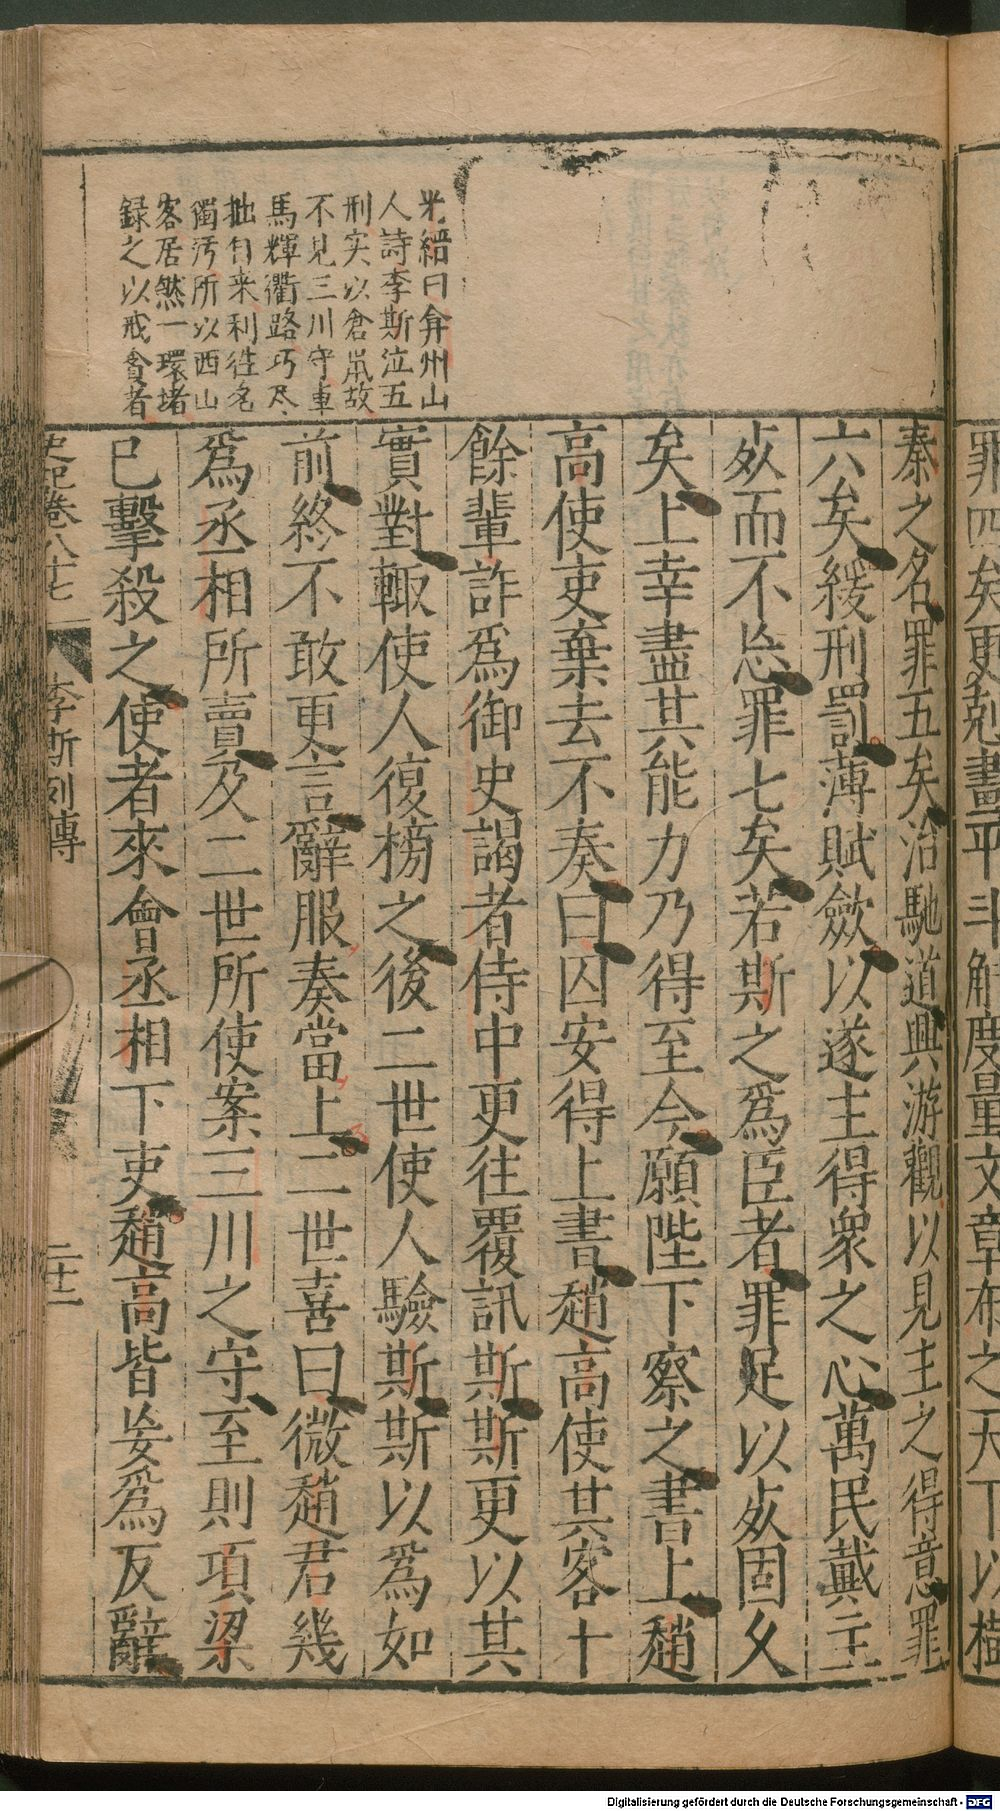 罪四矣更剋畫平斗斛度量文章布之天下以樹
秦之名罪五矣治馳道興游觀以見主之得意罪
六矣緩刑罰薄賦斂以遂主得衆之心萬民戴主
死而不忘罪七矣若斯之爲臣者罪足以死固久
矣上幸盡其能力乃得至今願陛下察之書上趙
高使吏棄去不奏曰囚安得上書趙高使其客十
餘輩詐爲御史謁者侍中更往覆訊斯斯更以其
實對輒使人復榜之後二世使人驗斯斯以爲如
前終不敢更言辭服奏當上二世喜曰微趙君幾
爲丞相所賣及二世所使案三川之守至則項梁
已擊殺之使者來會丞相下吏趙高皆妄爲反辭
光縉曰弇州山
人詩李斯泣五
刑实以倉鼠故
不見三川守車
馬輝衢路巧尽
拙自来利徃名
獨污所以西山
客居然一環堵
録之以戒貪者
史記卷八十七
李斯列傳
二十二
Digitalisierung gefördert durch die Deutsche Forschungsgemeinschaft - DFG